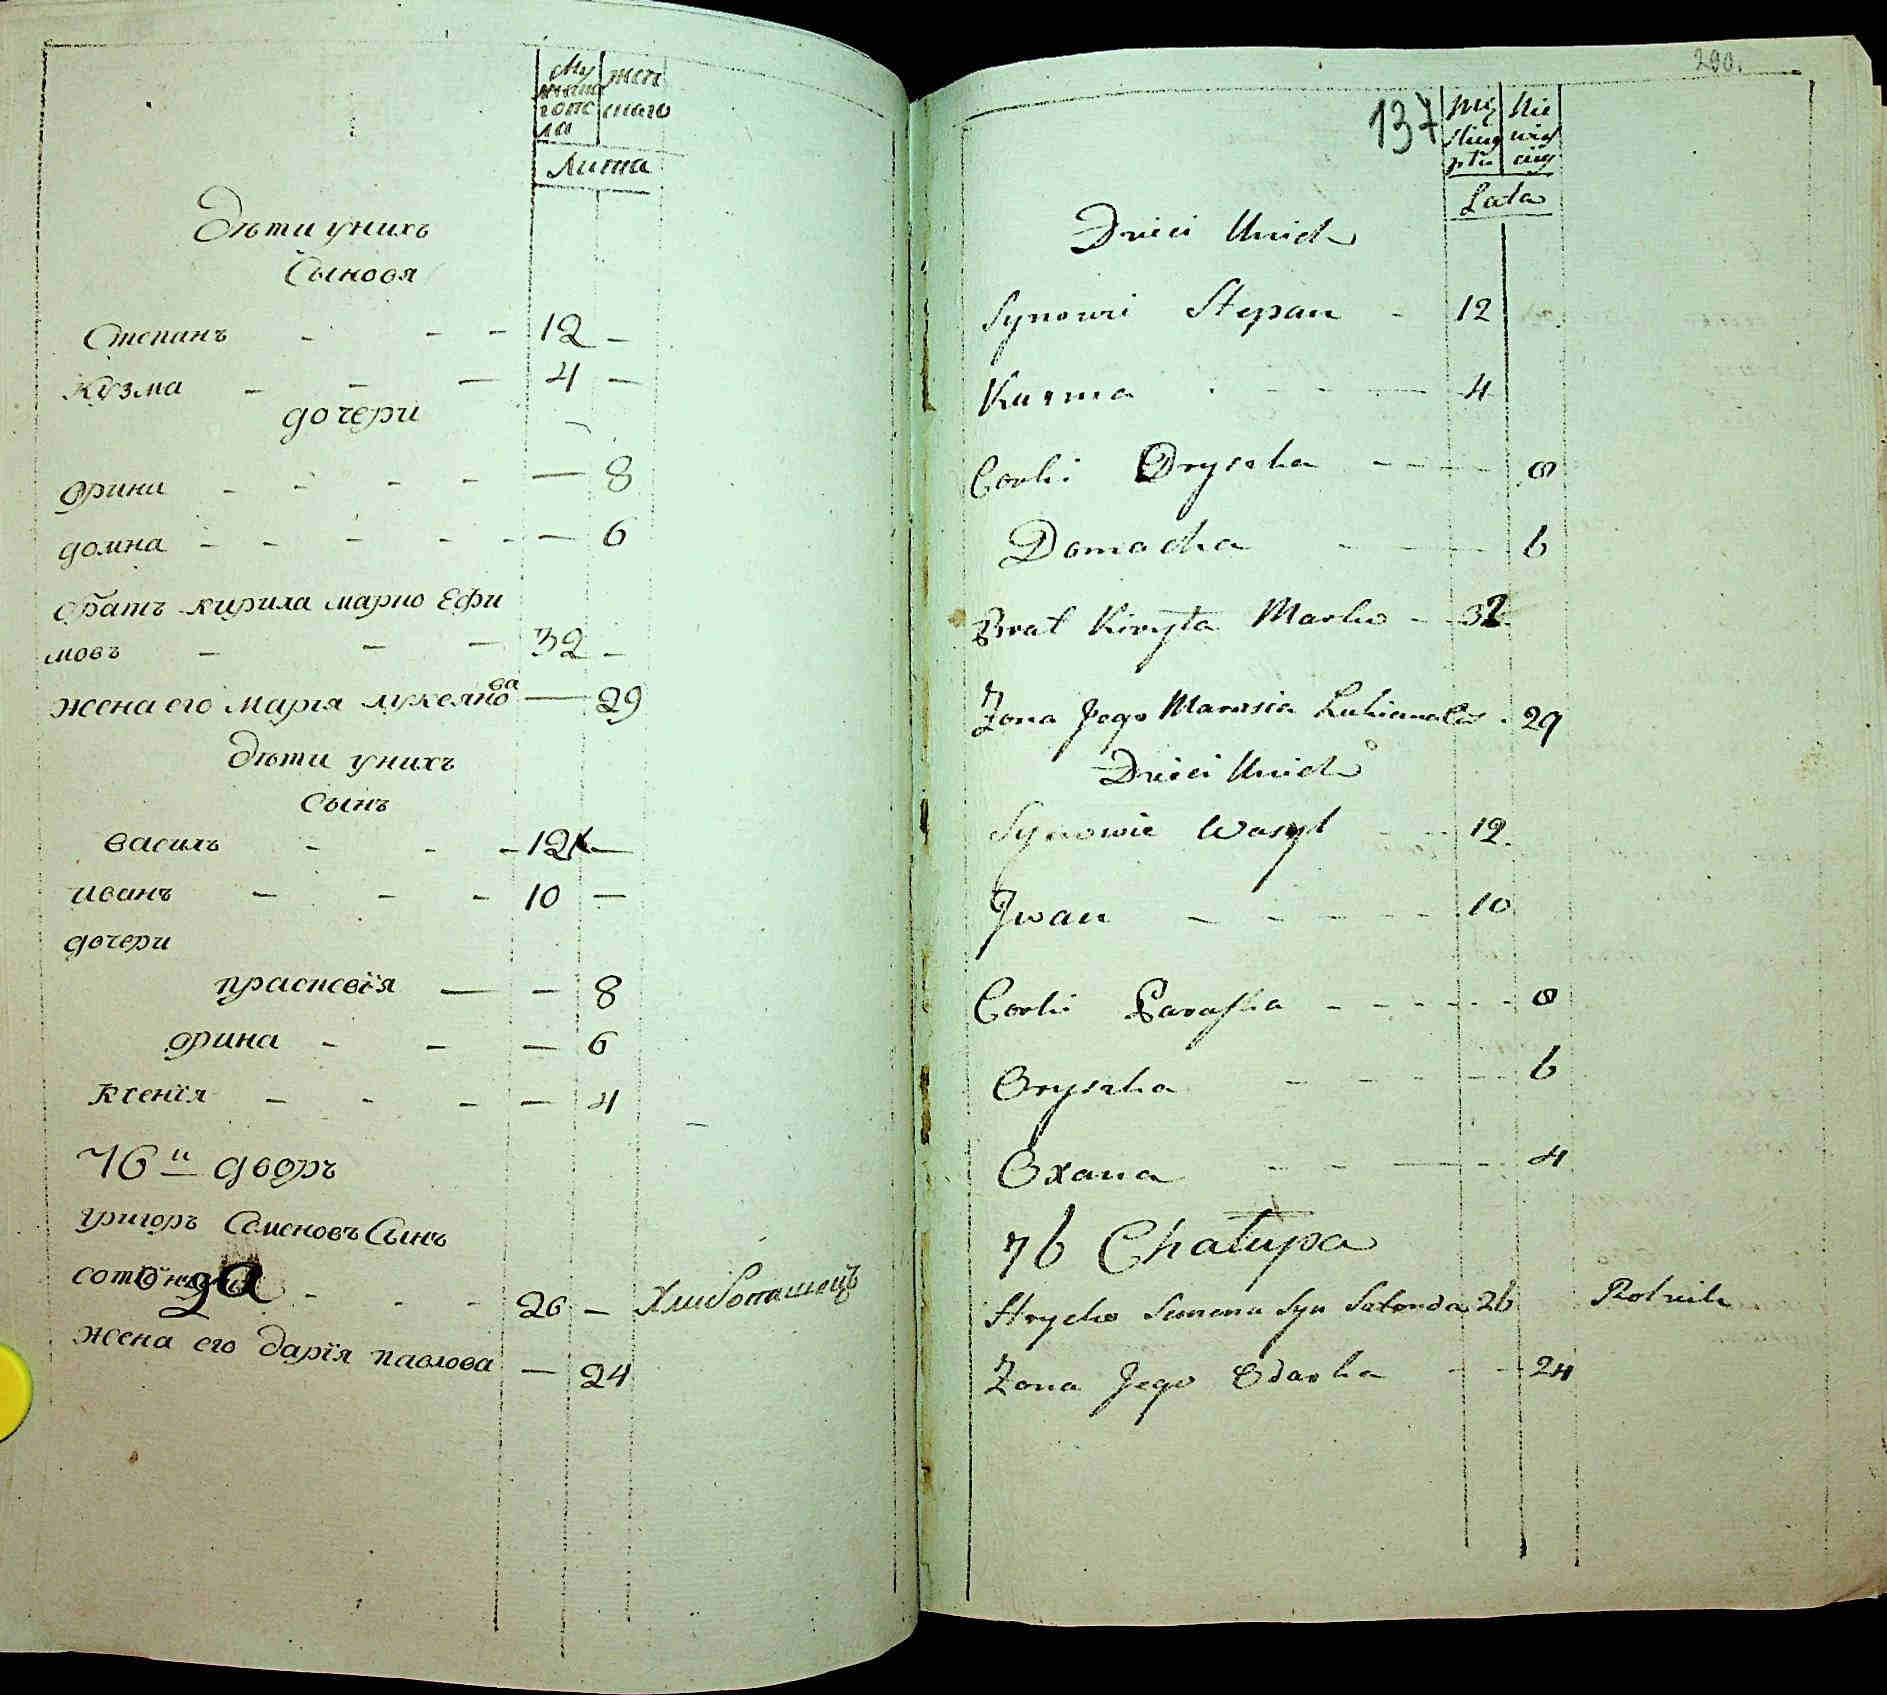 Му жен
жеска
гопс скаго
ла
Лита
Дѣти унихъ
Сыновя
Степанъ - - - 12 -
Кузма - - - 4 -
дочери
Орина - - - - - 8
домна - - - - - - 6
братъ кирила марко Ефи
мовъ - - - 32 -
жена его Марія лукеянова - 29
Дѣти унихъ
Сынъ
василъ - - - 12 -
иванъ - - - 10 -
дочери
праскевія - - 8
орина - - - 6
ксенія - - - - 4
76й дворъ
григоръ Семеновъ Сынъ
- - - 26 - Хлибопашецъ
жена его дарія павлова - 24
290.
137
Mę Nie
skiey wiey
płci ciey
Lata
Dzieci Unich
Synowi Stepan - 12
Kuzma - - - - 4
Corki Oryszka - - - - 8
Domacha - - - 6
Brat Kiryła Marko - - 32
Zona Jego Marusia Lukianowa - 29
Dzieci Unich
Synowie Wasyl - - 12
Iwan - - - - - 10
Corki Paraska - - - - - 8
Oryszka - - - - - 6
Oxana - - - - 4
76 Chałupa
Hrycko Semena Syn Satonda 26 Rolnik
Zona Jego Odarka - - 24